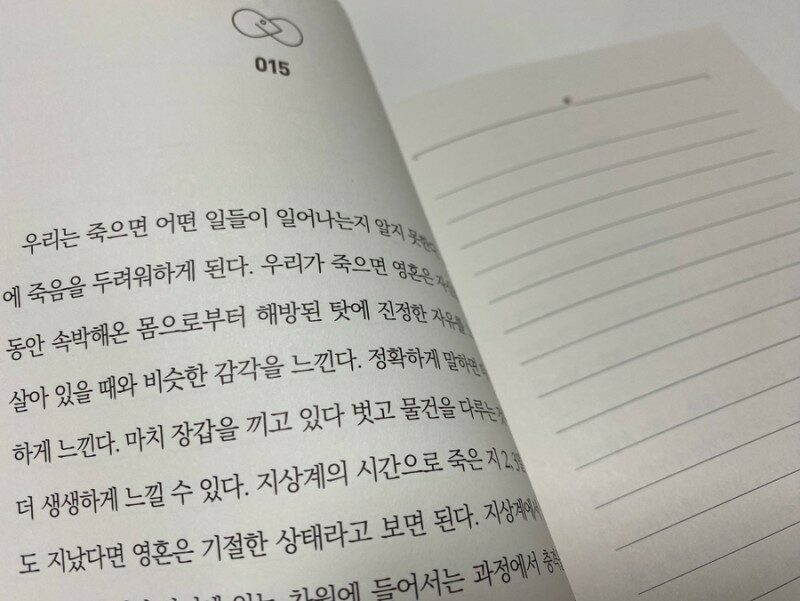 015
우리는 죽으면 어떤 일들이 일어나는지 알지
에 죽음을 두려워하게 된다. 우리가 죽으면 영혼은
동안 속박해온 몸으로부터 해방된 탓에 진정한
살아 있을 때와 비슷한 감각을 느낀다. 정확하게 말하면
하게 느낀다. 마치 장갑을 끼고 있다 벗고 물건을 다루는
더 생생하게 느낄 수 있다. 지상계의 시간으로 죽은 지 2, 3
도 지났다면 영혼은 기절한 상태라고 보면 된다. 지상계에서
차원에 들어서는 과정에서